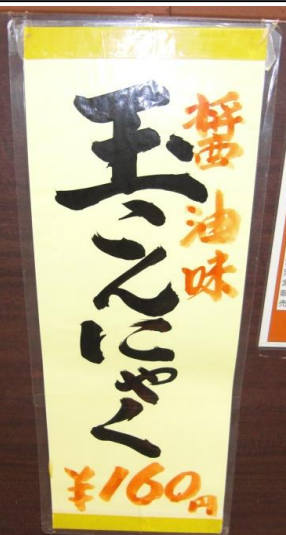 醤油味
玉こんにゃく
¥160円